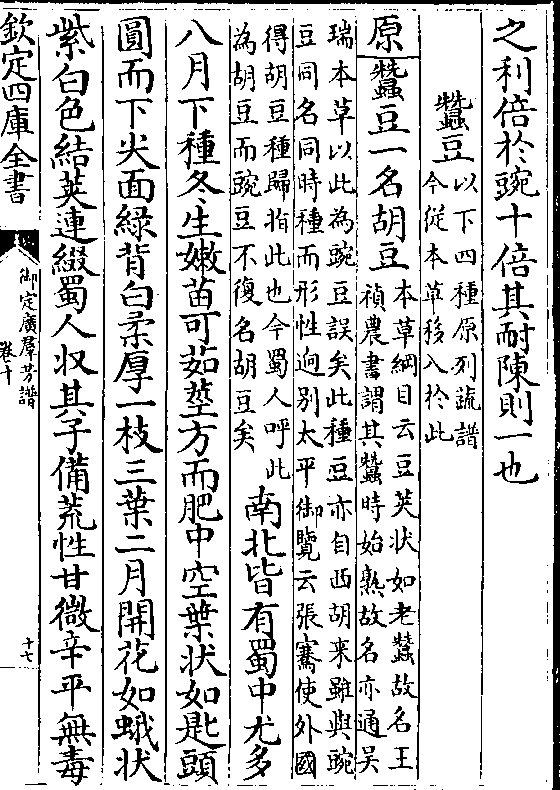 之利倍於豌十倍其耐陳則一也
蠶豆以下四種原列蔬譜
今從本草移入於此
原蠶豆一名胡豆本草綱目云豆莢狀如老蠶故名王
禎農書謂其蠶時始熟故名亦通吳
瑞本草以此為豌豆誤矣此種豆亦自西胡來雖與豌
豆同名同時種而形性迥别太平御覽云張騫使外國
得胡豆種歸指此也今蜀人呼此
為胡豆而豌豆不復名胡豆矣
南北皆有蜀中尤多
八月下種冬生嫩苗可茹莖方而肥中空葉狀如匙頭
圓而下尖面綠背白柔厚一枝三葉二月開花如蛾狀
紫白色結莢連綴蜀人收其子備荒性甘微辛平無毒
欽定四庫全書
御定廣羣芳譜
卷十
十七